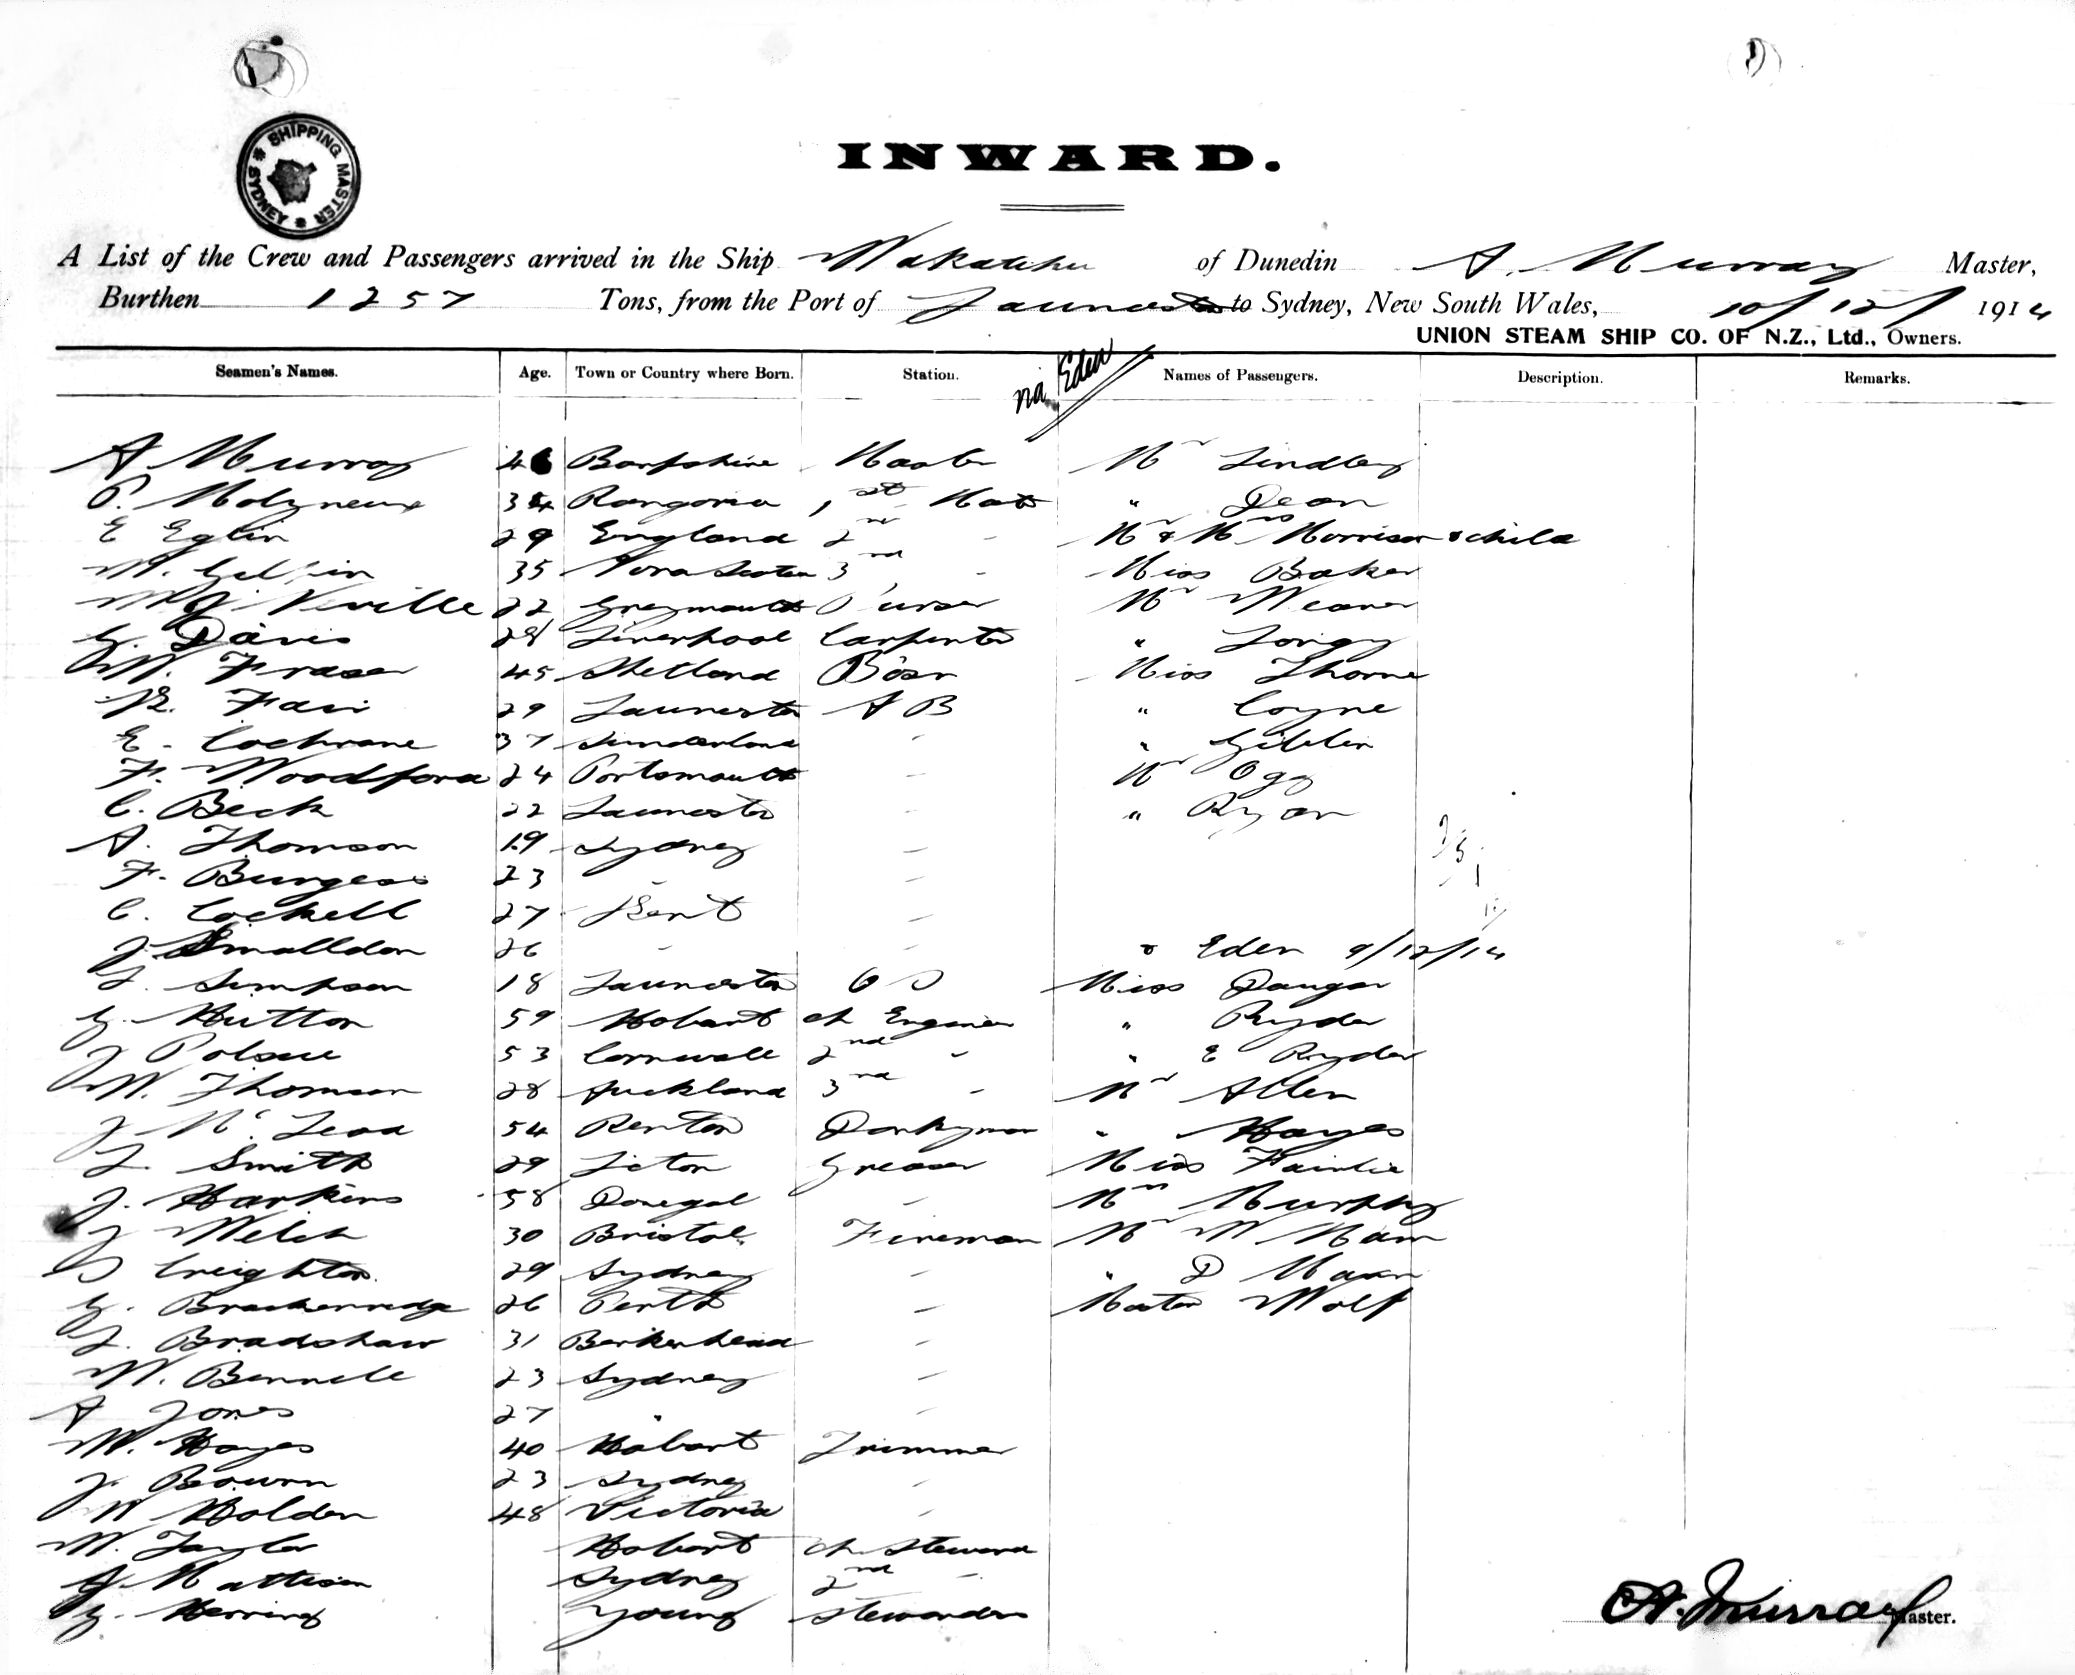 SHIPPING MASTER SYDNEY
INWARD.
A List of the Crew and Passengers arrived in the Ship Wakatipu of Dunedin A. Murray Master,
Burthen 1257 Tons, from the Port of Launceston to Sydney, New South Wales, 10/12/1914
UNION STEAM SHIP CO. OF N.Z., Ltd., Owners.
via Eden
Seamen's Names. Age. Town or Country where Born. Station. Names of Passengers. Description. Remarks.
A Murray 46 Banffshire Master Mr Lindley
P. Molyneux 34 Rangiora 1st Mate " Dean
E Eglin 29 England 2nd - Mr & Mrs Morrison & child
M. 35 Nova Scotia 3rd - Miss Baker
Neville 22 Greymouth Purser Mr Weaver
G. Davis 28 Liverpool Carpenter "
W. Fraser 45 Shetland Bosn Miss Thorne
R. Fair 29 Launceston A B " Coyne
E. Cochrane 37 Sunderland - " Giblin
F. Woodford 24 Portsmouth - Mr Ogg
C. Beck 22 Launceston - " Ryan
A. Thomson 19 Sydney -
F. Burgess 23 - -
C. Cockell 27 Kent -
J. Smalldon 26 - - & Eden 9/12/14
L. Simpson 18 Launceston O S Miss Dangar
G. Hutton 59 Hobart ch Engineer " Ryder
J Polsue 53 Cornwall 2nd - " E Ryder
W. Thomson 28 Auckland 3rd - Mr Allen
J McLeod 54 Renton Donkeyman " Hayes
L. Smith 29 Greaser Miss Fairlie
J. Harkins 58 Donegal - Mrs Murphy
J Welch 30 Bristol Fireman Mr W Mann
D Creighton 29 Sydney - " D Mann
G. Brackenridge 26 Perth - Master Wolf
L. Bradshaw 31 Berkenhead -
W. Bennell 23 Sydney -
A Jones 27 " -
W. Hayes 40 Hobart Trimmer
J Bourn 23 Sydney -
W Holden 48 Victoria -
W. Taylor Hobart ch Steward
J. Mattison Sydney 2nd -
G. Herring Young Stewardess
A. Murray Master.